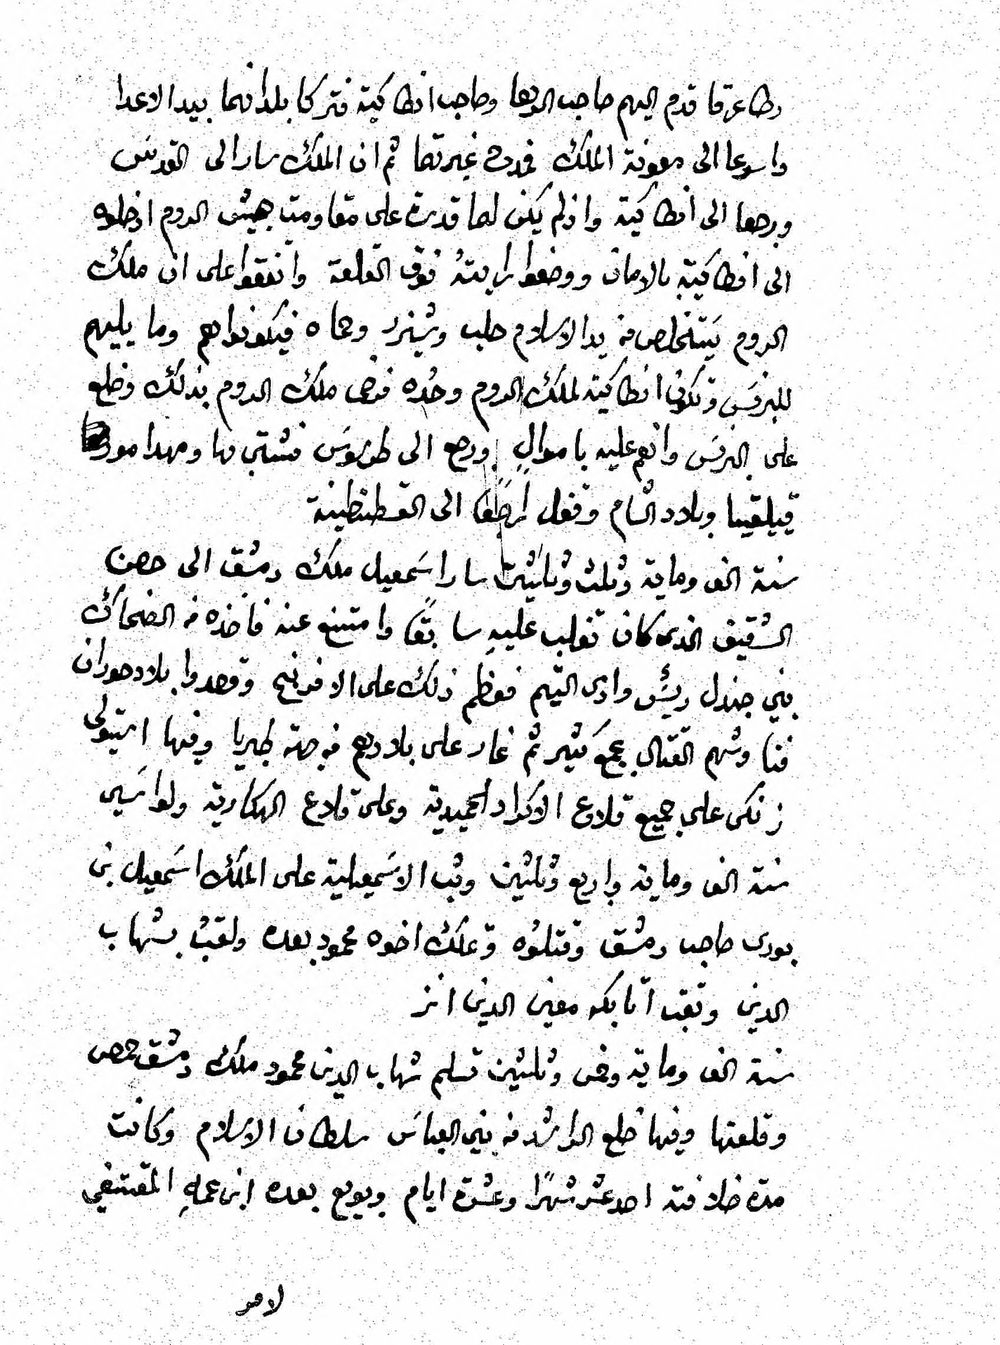 وطاعتها قدم اليهم صاحب الرها وصاحب انطاكية فتركا بلدانهما بيد الاعدا
واسرعا الى معونة الملك فمدح غيرتهما ثم ان الملك سار الى القدس
ورجعا الى انطاكية واذ لم يكن لهما قدرة على مقاومت جيش الروم ادخلوه
الى انطاكية بالامان ووضعوا رايته فوق القلعة واتفقوا على ان ملك
الروم يستخلص من يد الاسلام حلب وشيزر وحماه فيكونوا هم وما يليهم
للبرنس وتكون انطاكية لملك الروم وحده فرضى ملك الروم بذلك وخلع
على البرنس وانعم عليه باموال ورجع الى طرسوس فشتى بها ومهد امور
قيلقيا وبلاد الشام وقفل ايضًا الى القسطنطينة
سنة الف وماية وثلث وثلثين سار اسمعيل ملك دمشق الى حصن
الشقيف الذى كان تغلب عليه سابقًا وامتنع عنه فاخذه من الضحاك
بني جندل ريئس وادى التيم فعظم ذلك على الافرنج وقصدوا بلاد حوران
فناوشهم القتال بجمع كثير ثم غار على بلادهم من جهة طبريا وفيها استولى
زنكى على جميع قلاع الاكراد الحميدية وعلى قلاع الهكارية ولواسيى
سنة الف وماية واربع وثلثين وثب الاسمعيلية على الملك اسمعيل بن
بورى صاحب دمشق وقتلوه وتملك اخوه محمود بعده ولقب بشهاب
الدين وتبت اتابكه معين الدين انز
سنة الف وماية وخمس وثلثين تسلم شهاب الدين محمود ملك دمشق حمص
وقلعتها وفيها خلع الراشد من بني العباس سلطان الاسلام وكانت
مدة خلافته احد عشر شهرًا وعشرة ايام وبويع بعده ابن عمه المقتفي
لامر